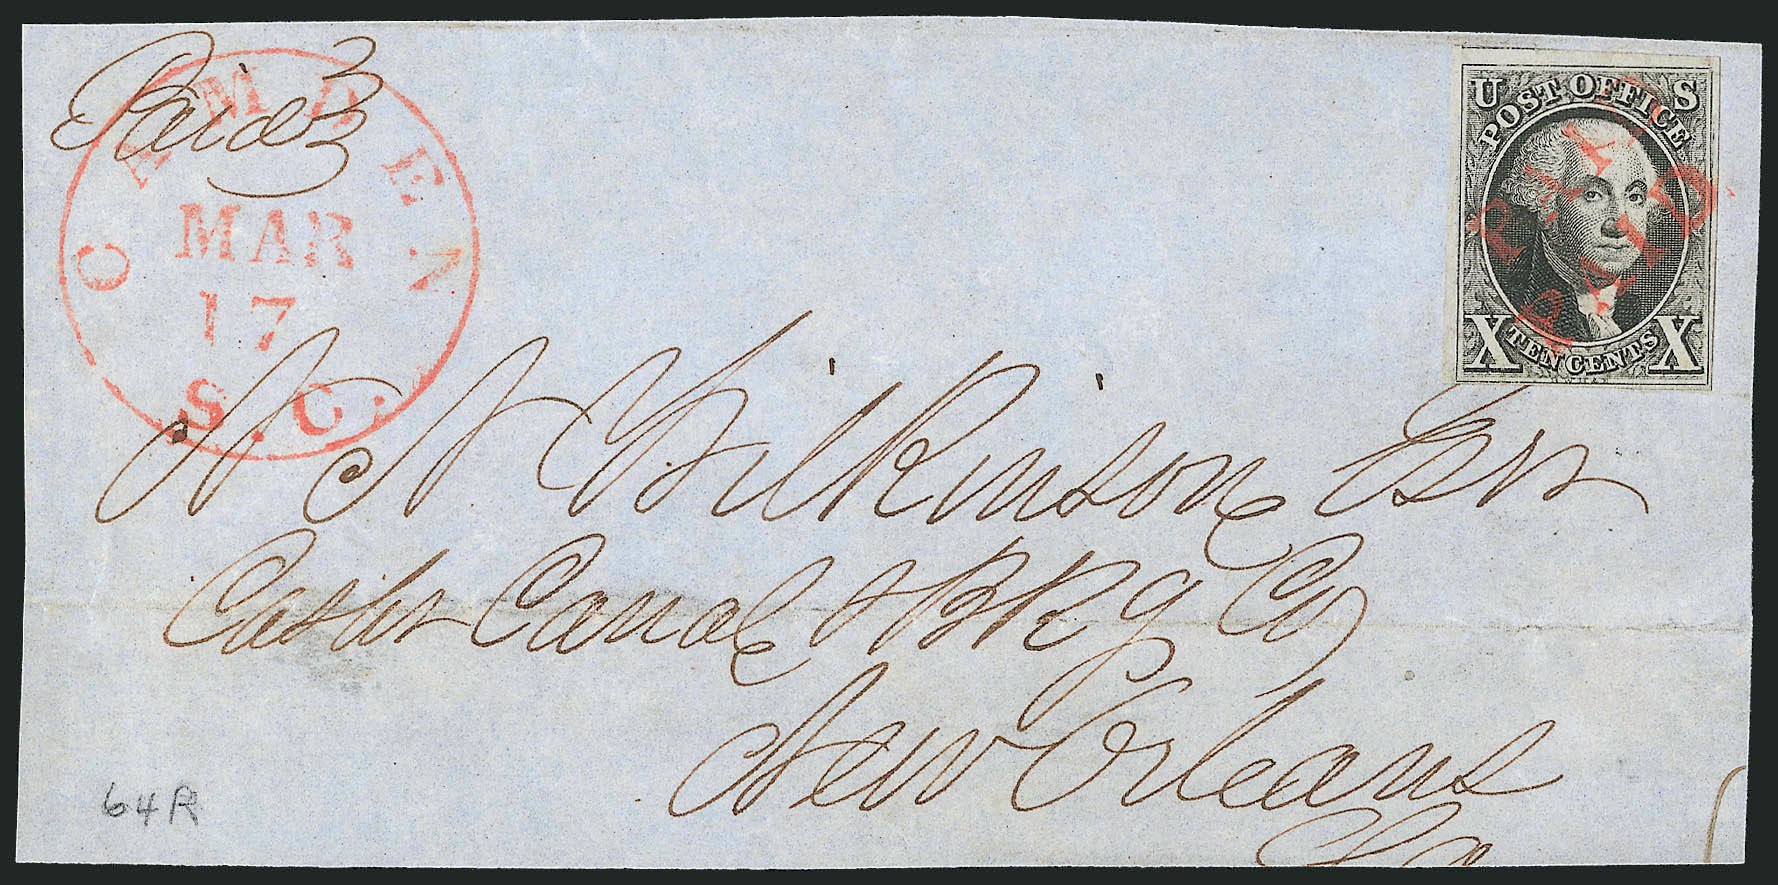 Paid
CAMDEN
MAR
17
S.C.
U S
POST OFFICE
X TEN CENTS X
PAID
PAID
Wilkinson Esqr
Cashr Canal & BKg Co
New Orleans
La
64R